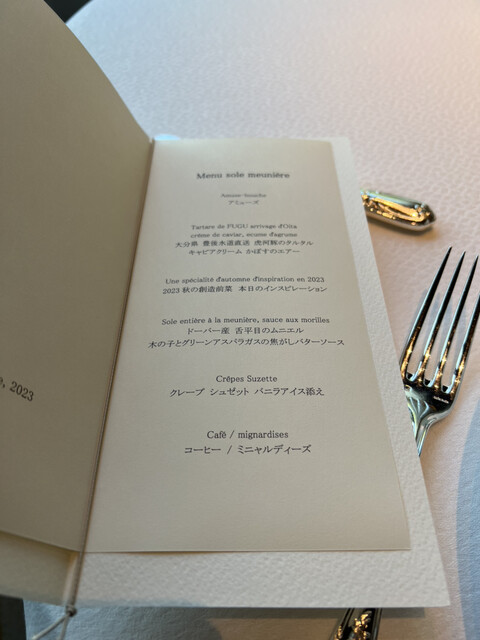 Menu sole meunière
Amuse-bouche
アミューズ
Tartare de FUGU arrivage d'Oita
crème de caviar, ecume d'agrume
大分県 豊後水道直送 虎河豚のタルタル
キャビアクリーム かぼすのエアー
Une spécialité d'automne d'inspiration en 2023
2023 秋の創造前菜 本日のインスピレーション
Sole entière à la meunière, sauce aux morilles
ドーバー産 舌平目のムニエル
木の子とグリーンアスパラガスの焦がしバターソース
Crêpes Suzette
クレープ シュゼット バニラアイス添え
Café / mignardises
コーヒー / ミニャルディーズ
, 2023